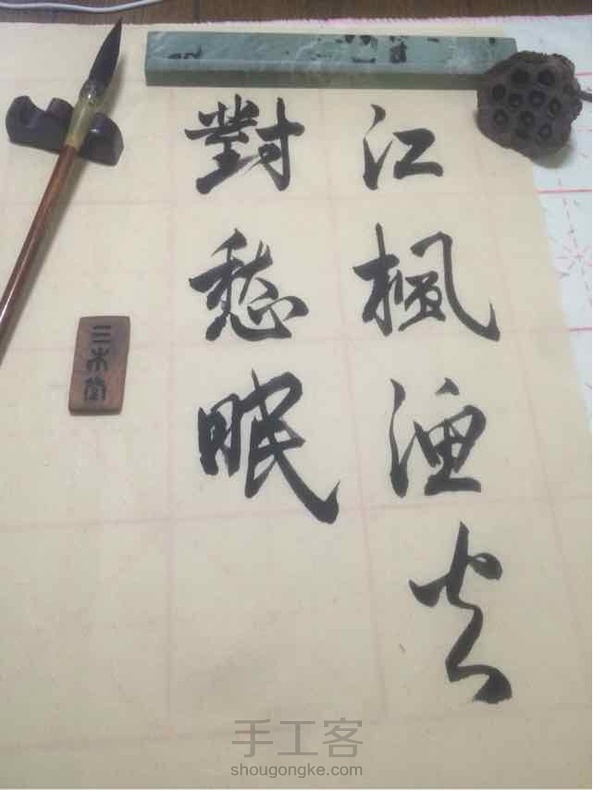 江楓渔火
對愁眠
三木堂
手工客
shougongke.com